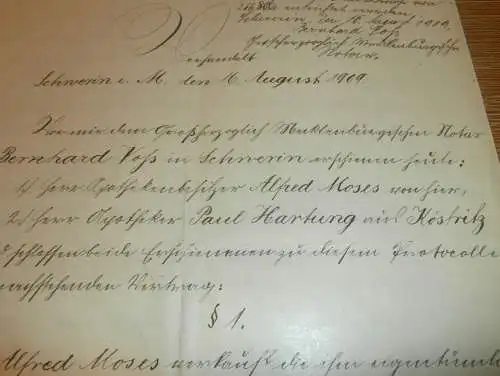 entrichtet worden
Schwerin, den 16. August 1909.
Bernhard Voß
Großherzoglich Mecklenburgischer
Notar.
Verhandelt
Schwerin i. M. den 16 August 1909.
Vor mir dem Großherzoglich Mecklenburgischen Notar
Bernhard Voss in Schwerin erschienen heute:
1) Herr Apothekenbesitzer Alfred Moses von hier,
2) Herr Apotheker Paul Hartung aus Köstritz
schlossen beide Erschienenen zu diesem Protocolle
nachstehenden Vertrag:
§ 1.
Alfred Moses verkauft die ihm